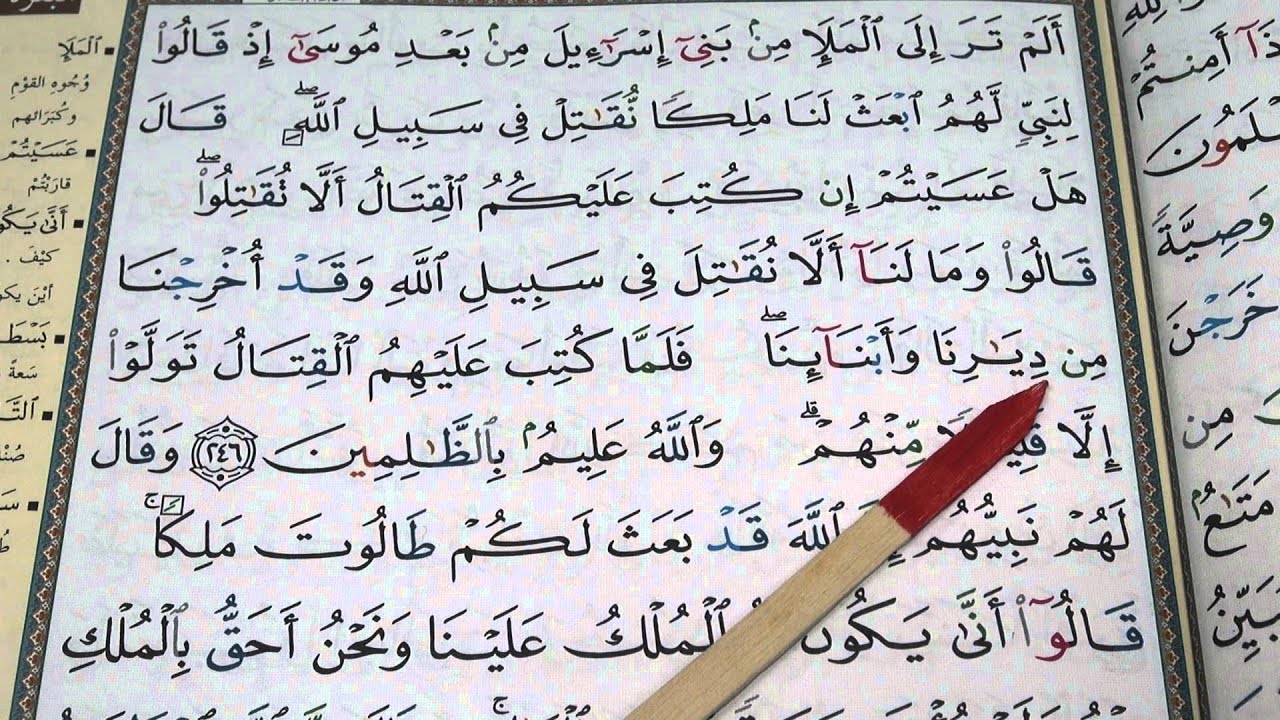 أَلَمْ تَرَ إِلَى ٱلْمَلَإِ مِنۢ بَنِىٓ إِسْرَٰٓءِيلَ مِنۢ بَعْدِ مُوسَىٰٓ إِذْ قَالُوا۟
لِنَبِىٍّ لَّهُمُ ٱبْعَثْ لَنَا مَلِكًا نُّقَـٰتِلْ فِى سَبِيلِ ٱللَّهِ ۖ قَالَ
هَلْ عَسَيْتُمْ إِن كُتِبَ عَلَيْكُمُ ٱلْقِتَالُ أَلَّا تُقَـٰتِلُوا۟ ۖ
قَالُوا۟ وَمَا لَنَآ أَلَّا نُقَـٰتِلَ فِى سَبِيلِ ٱللَّهِ وَقَدْ أُخْرِجْنَا
مِن دِيَـٰرِنَا وَأَبْنَآئِنَا ۖ فَلَمَّا كُتِبَ عَلَيْهِمُ ٱلْقِتَالُ تَوَلَّوْا۟
إِلَّا مِّنْهُمْ ۗ وَٱللَّهُ عَلِيمٌۢ بِٱلظَّـٰلِمِينَ ٢٤٦ وَقَالَ
لَهُمْ نَبِيُّهُمْ ٱللَّهَ قَدْ بَعَثَ لَكُمْ طَالُوتَ مَلِكًا ۚ
قَالُوٓا۟ أَنَّىٰ يَكُونُ ٱلْمُلْكُ عَلَيْنَا وَنَحْنُ أَحَقُّ بِٱلْمُلْكِ
ٱلْمَلَإِ
وُجُوهِ القَوْمِ
وَكُبَرَائِهِم
عَسَيْتُمْ
قَارَبْتُمْ
كَيْفَ
سَعَةً
أَمِنتُم
وَصِيَّةً
خَرَجْنَ
مِن
مَتَـٰعٌۢ